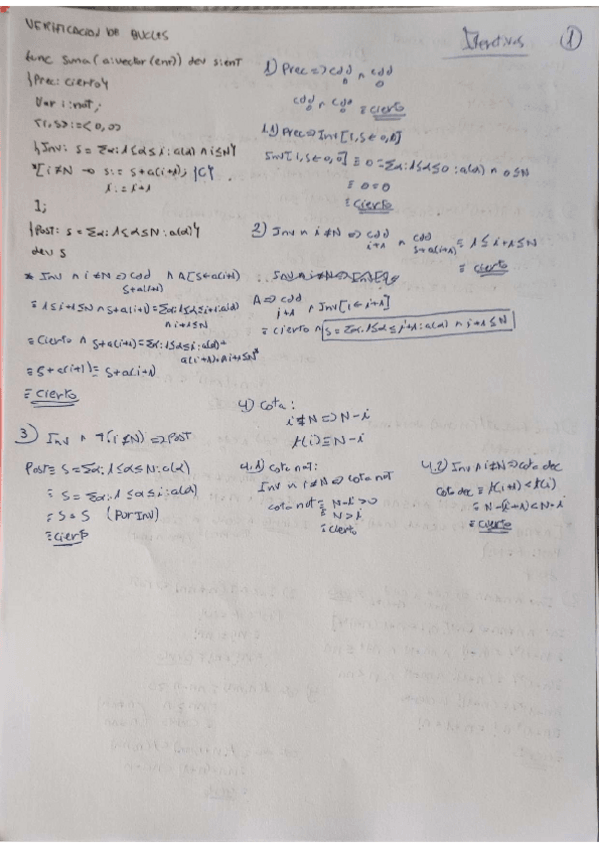 VERIFICACION DE BUCLES
Iterativos
1
func suma(a:vector(ent)) dev s:ent
{Prec: cierto}
Var i:nat;
<i,s>:=<0,0>
{Inv: s = Σα:1≤α≤i:a(α) ∧ i≤N}
*[i≠N → s:= s+a(i+1); {C}
i:=i+1
];
{Post: s = Σα:1≤α≤N:a(α)}
dev s
* Inv ∧ i≠N => cdd ∧ A[s←a(i+1)
s+a(i+1)
≡ 1≤i+1≤N ∧ s+a(i+1)=Σα:1≤α≤i+1:a(α)
∧ i+1≤N
≡ cierto ∧ s+a(i+1)=Σα:1≤α≤i:a(α)+
a(i+1) ∧ i+1≤N
≡ s+a(i+1)= s+a(i+1)
≡ cierto
1) Prec => cdd ∧ cdd
0 0
cdd ∧ cdd ≡ cierto
0 0
1.1) Prec => Inv[i,s←0,0]
Inv[i,s←0,0] ≡ 0=Σα:1≤α≤0:a(α) ∧ 0≤N
≡ 0=0
≡ cierto
2) Inv ∧ i≠N => cdd ∧ cdd ≡ 1≤i+1≤N
i+1 s+a(i+1)
≡ cierto
A => cdd ∧ Inv[i←i+1]
i+1
≡ cierto ∧ s=Σα:1≤α≤i+1:a(α) ∧ i+1≤N
3) Inv ∧ ¬(i≠N) => Post
Post ≡ s=Σα:1≤α≤N:a(α)
≡ s=Σα:1≤α≤i:a(α)
≡ s=s (Por INV)
≡ cierto
4) Cota:
i≠N => N-i
t(i)≡N-i
4.1) cota nat:
Inv ∧ i≠N => cota nat
cota nat ≡ N-i>0
≡ N>i
≡ cierto
4.2) Inv ∧ i≠N => cota dec
cota dec ≡ t(i+1)<t(i)
≡ N-(i+1)<N-i
≡ cierto